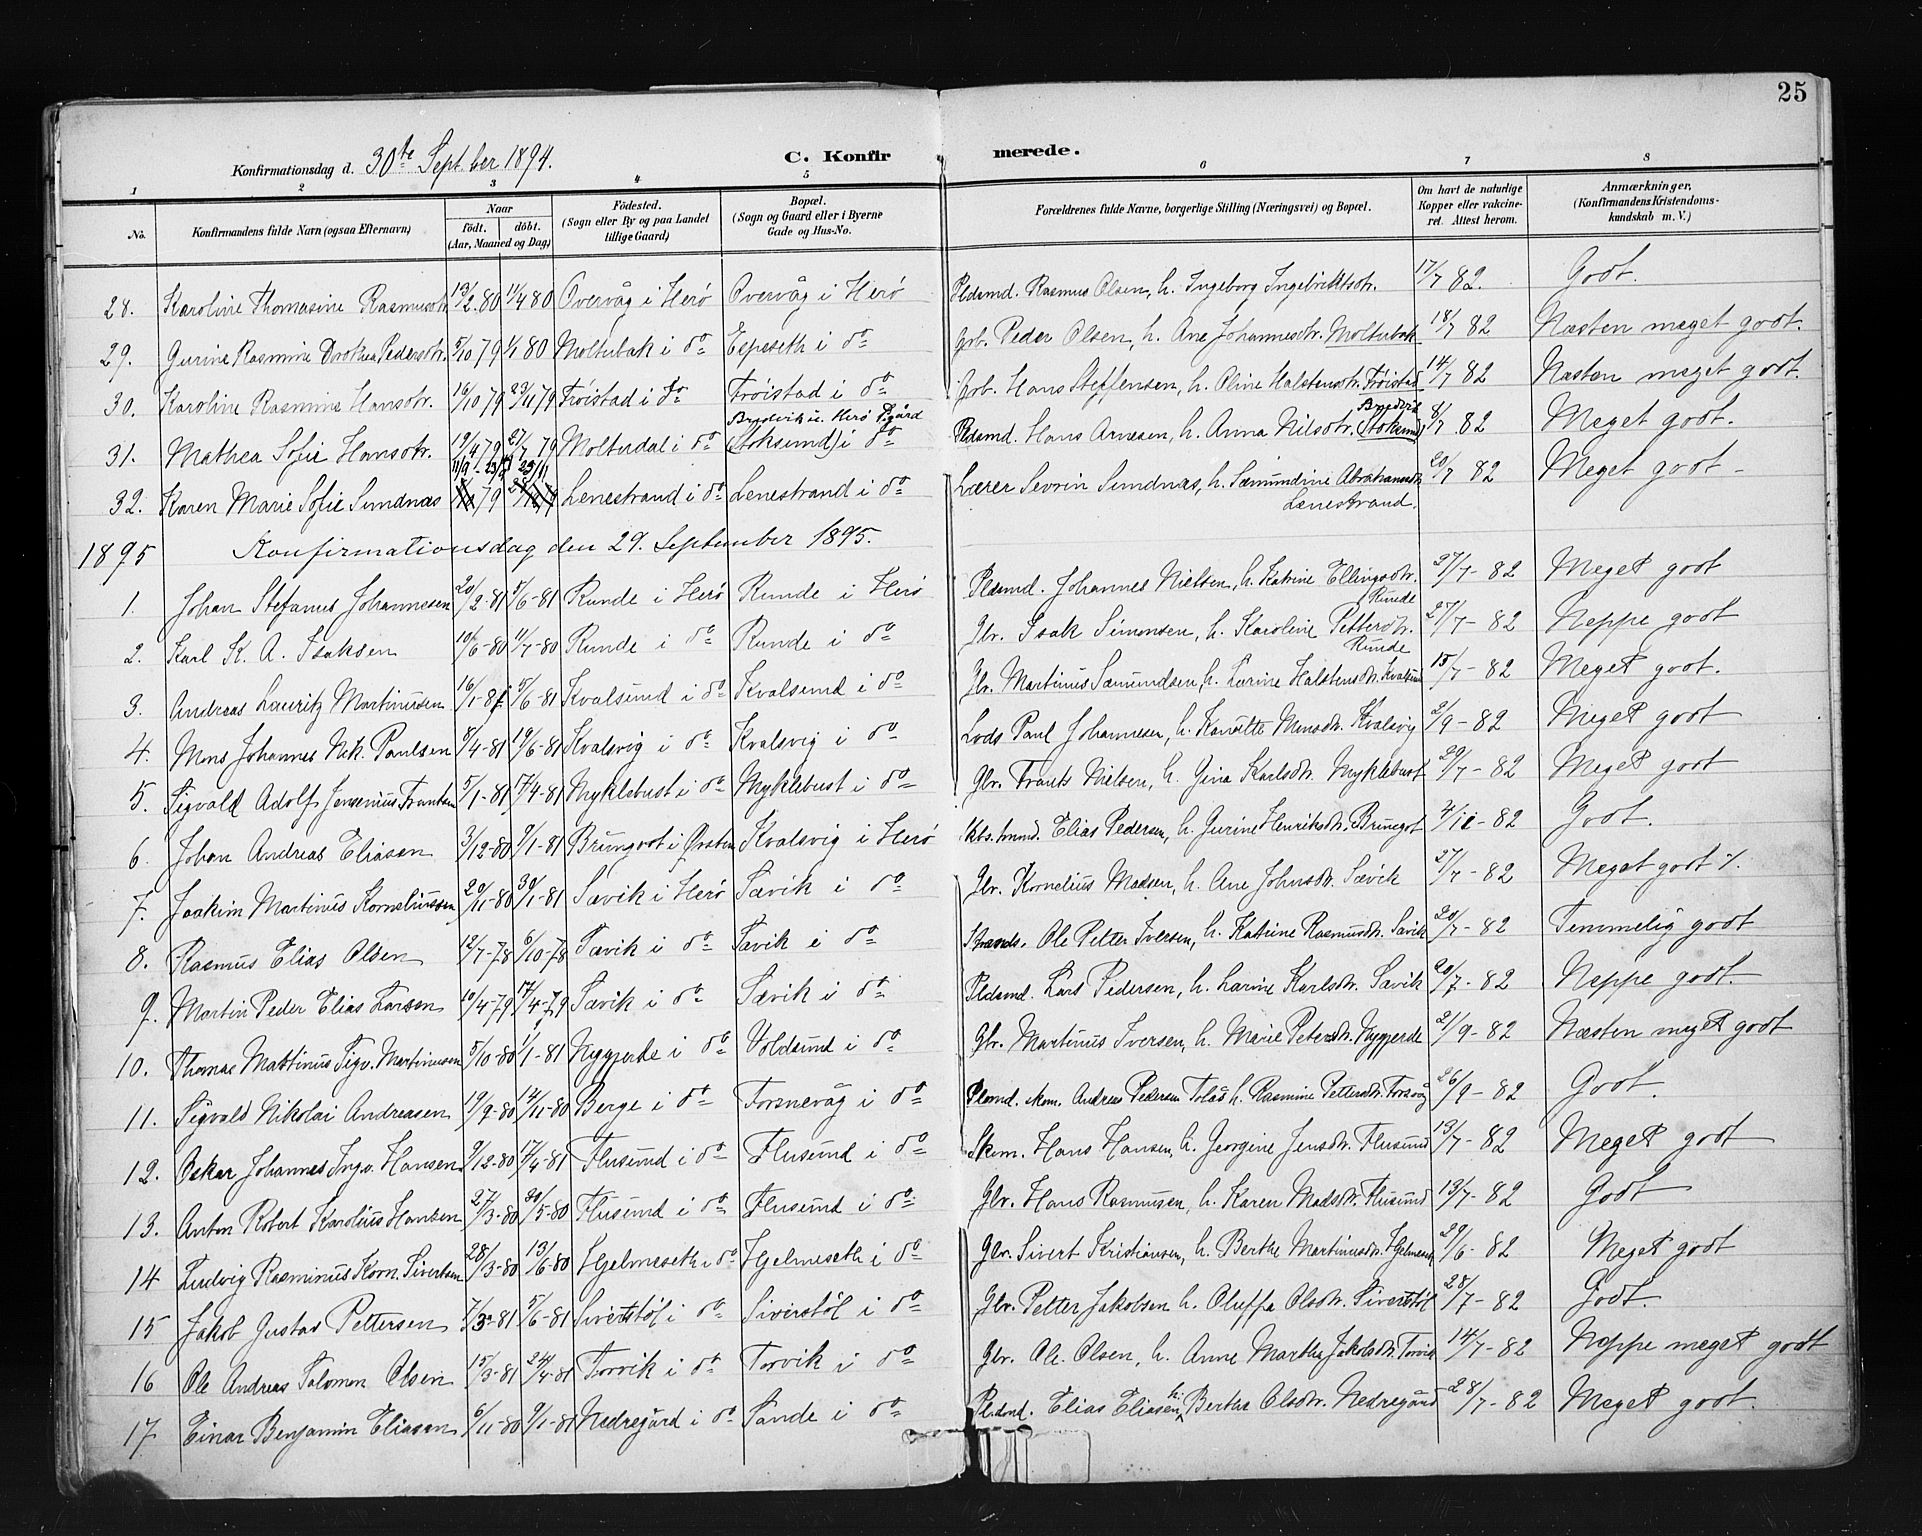 25
Konfirmationsdag d. 30te Septber 1894.
C. Konfir merede.
1 2 3 4 5 6 7 8
No. Konfirmandens fulde Navn (ogsaa Efternavn) Naar født. døbt. (Aar, Maaned og Dag) Fødested. (Sogn eller By og paa Landet tillige Gaard) Bopæl. (Sogn og Gaard eller i Byerne Gade og Hus-No. Forældrenes fulde Navne, borgerlige Stilling (Næringsvei) og Bopæl. Om havt de naturlige Kopper eller vakcineret. Attest herom. Anmærkninger, (Konfirmandens Kristendomskundskab m. V.)
28. Karoline Thomasine Rasmusdtr. 13/2.80 11/4 80 Overvåg i Herø Overvåg i Herø Pldsmd. Rasmus Olsen, h. Ingeborg Ingebriktsdtr. 17/7 82. Godt.
29. Gurine Rasmine Dorthea Pedersdtr. 5/10 79 1/1 80 Moltubak i do Espeseth i do Gbr. Peder Olsen, h. Ane Johannesdtr. Moltubak 18/7 82 Næsten meget godt.
30. Karoline Rasmine Hansdtr. 16/10 79 23/11 79 Frøistad i do Frøistad i do Gbr. Hans Steffensen, h. Oline Halstensdtr. Frøistad 14/7 82 Næsten meget godt.
31. Mathea Sofie Hansdtr. 19/4 79 27/7 79 Molturdal i do (Stoksund) i do Pldsmd. Hans Arnesen, h. Anna Nilsdtr. (Stoksund) 8/7 82 Meget godt.
32. Karen Marie Sofie Sundnæs 79 Lenestrand i do Lenestrand i do Lærer Sevrin Sundnæs, h. Sæmundine Abrahamsdtr. Lænestrand. 20/7 82 Meget godt -
1895 Konfirmationsdag den 29. September 1895.
1. Johan Stefanus Johannesen 20/2-81 5/6-81 Runde i Herø Runde i Herø Pldsmd. Johannes Nielsen, h. Katrine Ellingsdtr. Runde 27/7-82 Meget godt
2. Karl K. A. Isaksen 10/6-80 11/7-80 Runde i do Runde i do Gbr. Isak Simonsen, h. Karoline Pettersdtr. Runde 27/7-82 Neppe godt
3. Andreas Lauritz Martinusen 16/1-81 5/6-81 Kvalsund i do Kvalsund i do Gbr. Martinus Sæmundsen, h. Larine Halstensdtr. Kvalsund 15/7-82 Meget godt.
4. Mons Johannes Nik. Paulsen 8/4-81 19/6-81 Kvalsvig i do Kvalsvig i do Lods Paul Johannesen, h. Kanutte Monsdtr. Kvalsvig 2/9-82 Meget godt
5. Sigvald Adolf Jensenius Frantsen 5/1-81 17/4-81 Myklebust i do Myklebust i do Gbr. Frants Nielsen, h. Gina Karlsdtr. Myklebust 29/7-82 Meget godt
6. Johan Andreas Eliasen 3/12-80 9/1-81 Brungot i Ørsten Kvalsvig i Herø Elias Pedersen, h. Gurine Henriksdtr. Brungot 4/10-82 Godt.
7. Joakim Martinus Korneliussen 20/11-80 30/1-81 Sævik i Herø Sævik i do Gbr. Kornelius Madsen, h. Ane Johnsdtr. Sævik 27/7-82 Meget godt ٪.
8. Rasmus Elias Olsen 12/7-78 6/10-78 Sævik i do Sævik i do Strands. Ole Petter Iversen, h. Katrine Rasmusdtr. Sævik 20/7-82 Temmelig godt
9. Martin Peder Elias Larsen 10/4-79 17/4-79 Sævik i do Sævik i do Pldsmd. Lars Pedersen, h. Larine Karlsdtr. Sævik 20/7-82 Neppe godt.
10. Thomas Mattinus Sigv. Martinusen 5/10-80 1/1-81 Nygjerde i do Voldsund i do Gbr. Martinus Iversen, h. Marie Petersdtr. Nygjerde 21/9-82 Næsten meget godt
11. Sigvald Nikolai Andreasen 19/9-80 14/11-80 Berge i do Fosnevåg i do Andreas Pedersen Tolås h. Rasmine Pettersdtr. Fosnvåg 26/9-82 Godt.
12. Oskar Johannes Ingv. Hansen 9/12-80 17/4-81 Flusund i do Flusund i do Skom. Hans Hansen, h. Georgine Jensdtr. Flusund 13/7-82 Meget godt
13. Anton Robert Karolius Hansen 27/3-80 20/5-80 Flusund i do Flusund i do Gbr. Hans Rasmusen, h. Karen Madsdtr. Flusund 19/7-82 Godt
14 Ludvig Rasminus Korn. Sivertsen 28/3-80 13/6-80 Hjelmeseth i do Hjelmeseth i do Gbr. Sivert Kristiansen, h. Berthe Martinusdtr. Hjelmeseth 29/6-82 Meget godt
15 Jakob Gustav Pettersen 7/3-81 5/6-81 Siverstøl i do Siverstøl i do Gbr. Petter Jakobsen h. Oluffa Olsdtr. Siverstøl 28/7-82 Godt.
16 Ole Andreas Salomon Olsen 15/3-81 24/4-81 Torvik i do Torvik i do Gbr. Ole Olsen, h. Anne Marthe Jakobsdtr. Torvik 14/7-82 Neppe meget godt
17 Einar Benjamin Eliasen 6/11-80 9/1-81 Nedregård i do Sande i do Pldsmd. Elias Eliasen h. Berthe Olsdtr. Nedregård 28/7-82 Meget godt.